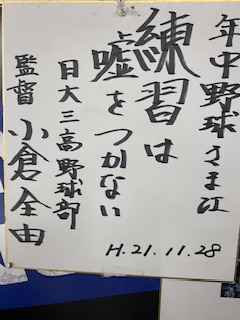 年中野球さま江
練習は
嘘をつかない
日大三高野球部
監督 小倉全由
H.21.11.28